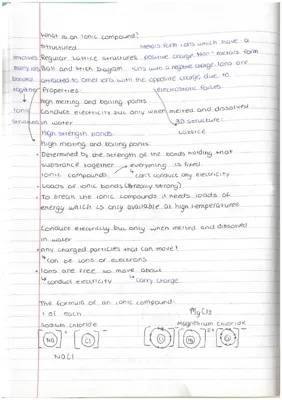 What is an ionic compound?
Structured
Metals form ions which have a
Regular lattice structures positive charge. Non-metals form
Ball and stick Diagram ions with a negative charge. Ions are
attracted to other ions with the opposite charge due to
together Properties electrostatic forces
high melting and boiling points
ionic Conduct electricity but only when melted and dissolved
in water 3D structure:
lattice
High strength bonds
High melting and boiling points
• Determined by the strength of the bonds holding that
substance together → everything is fixed
ionic compounds ↳ can't conduct any electricity
• Loads of ionic bonds (already strong)
• To break the ionic compounds it needs loads of
energy which is only available at high temperatures
Conduct electricity but only when melted and dissolved
in water
• Any charged particles that can move!
↳ can be ions or electrons
• Ions are free to move about
↳ conduct electricity ↳ carry charge
The formula of an ionic compound
1 of each MgCl₂
Sodium chloride Magnesium chloride
[Na]⁺ [Cl]⁻
NaCl